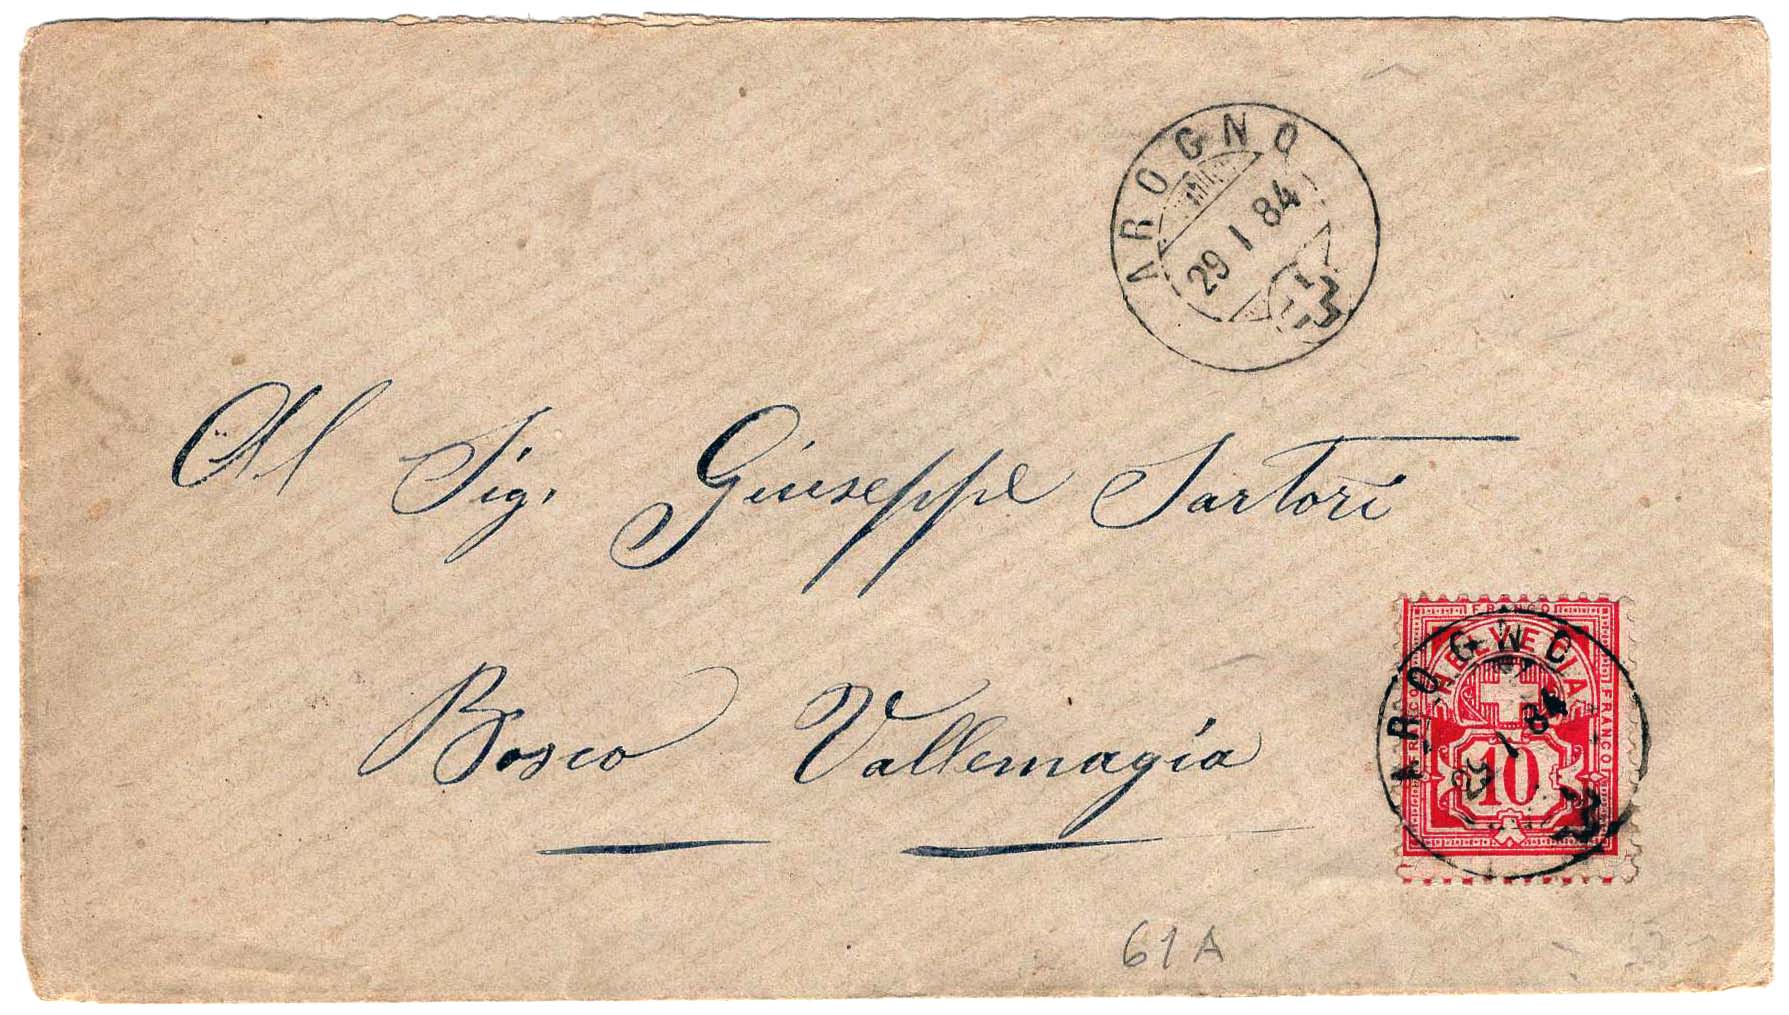 AROGNO
29 I 84
Al Sig. Giuseppe Sartori
Bosco Vallemagia
FRANCO
HELVETIA
FRANCO
FRANCO
10
AROGNO
29 I 84
61A